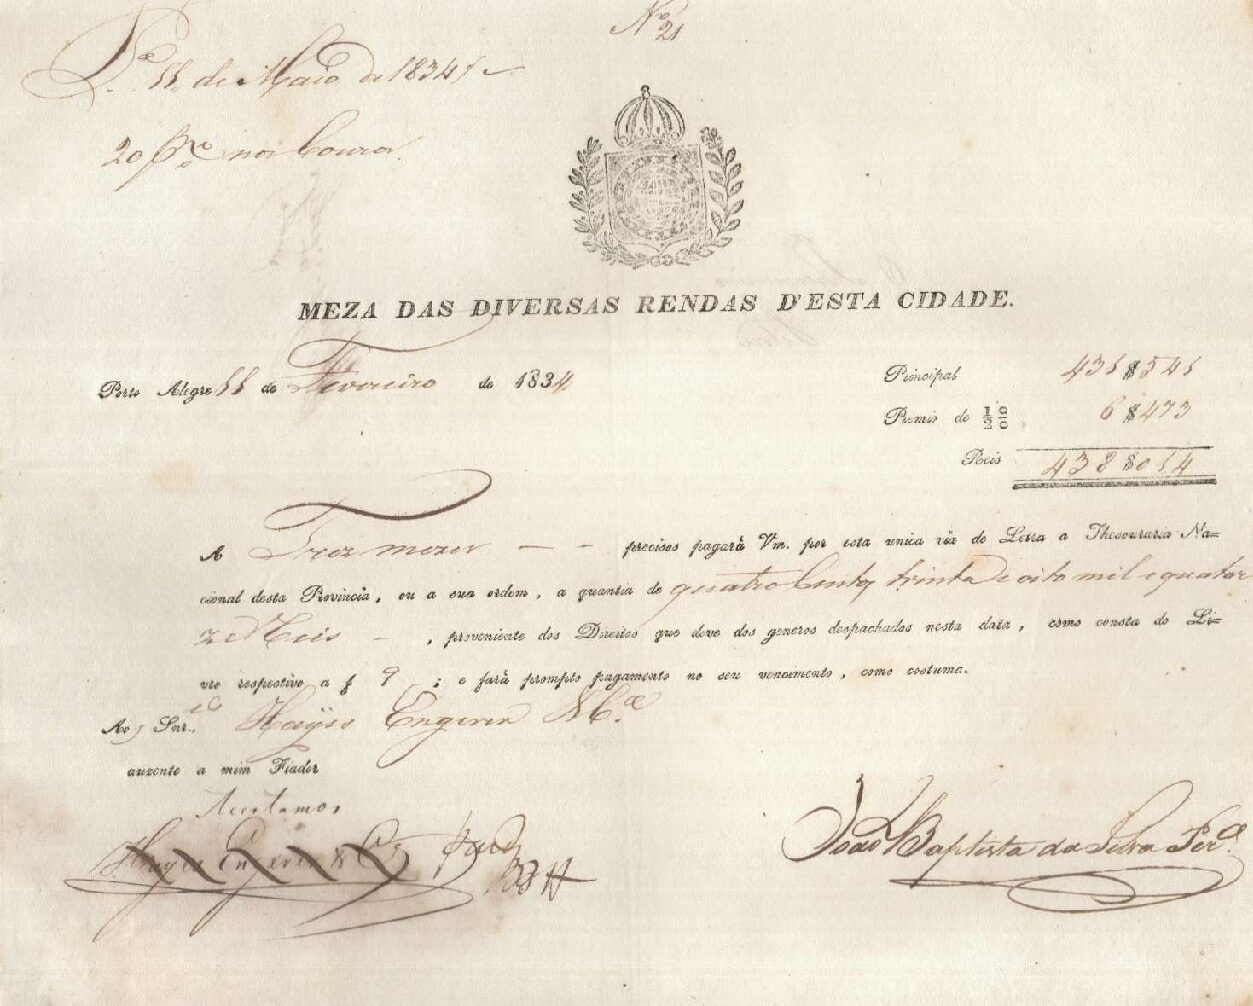 Nº 21
11 de Maio de 1834
20 pr % nos Couros
MEZA DAS DIVERSAS RENDAS D'ESTA CIDADE.
Porto Alegre 11 de Fevereiro de 1834
Principal 431$541
Premio de ½ % 6$473
Reis 438$014
A Trez mezes — — precisos pagará Vm. por esta unica via de Letra a Thesouraria Na=
cional desta Provincia, ou a sua ordem, a quantia de quatro Centos trinta e oito mil e quator
ze Reis — , proveniente dos Direitos que deve dos generos despachados nesta data, como consta do Li=
vro respectivo a f 9 ; e fará prompto pagamento no seu vencimento, como costuma.
Aos Snr.es Hayes Engerer & Cª
auzente a mim Fiador
Aceitamos
Hayes Engerer & Cª
João Baptista da Silva Perª